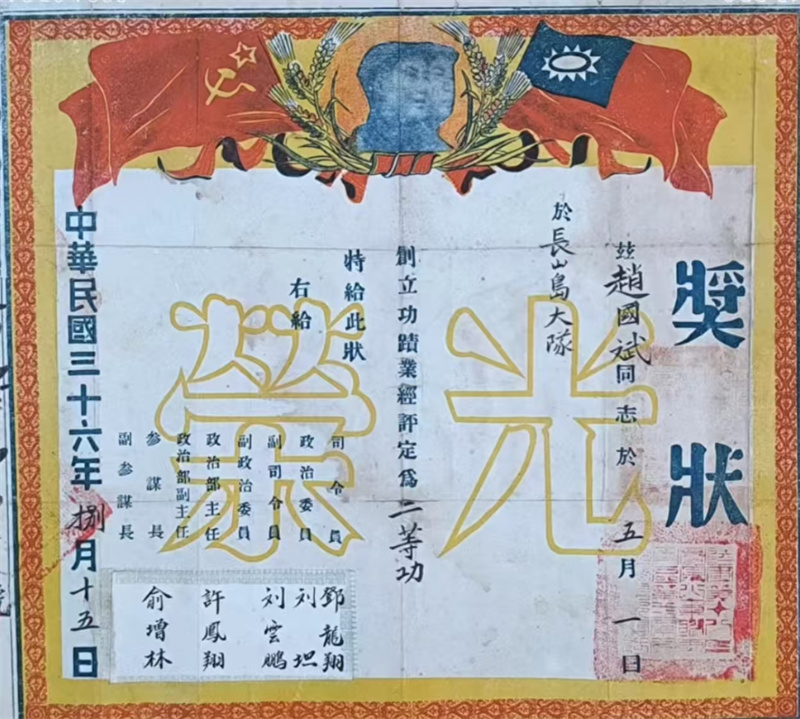 獎狀
兹趙國斌同志於五月一日
於長山島大隊
創立功蹟業經評定爲二等功
特給此狀
右給
司令員 鄧龍翔
政治委員 刘坦
副司令員 刘雲鵬
副政治委員
政治部主任 許鳳翔
政治部副主任
參謀長 俞增林
副參謀長
中華民國三十六年捌月十五日
光榮